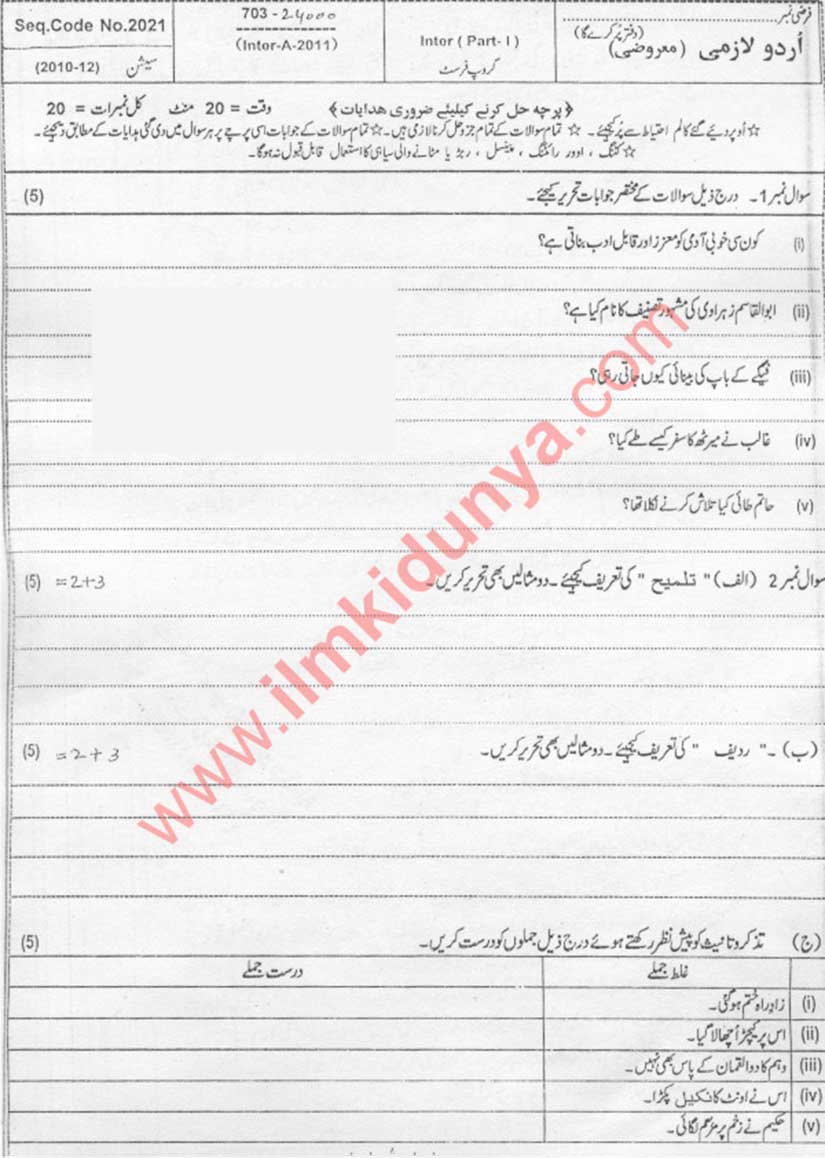 فرضی نمبر
(دفتر پُر کرے گا)
اُردو لازمی (معروضی)
Inter ( Part- I )
گروپ فرسٹ
703 - 24000
(Inter-A-2011)
Seq.Code No.2021
(2010-12) سیشن
﴿پرچہ حل کرنے کیلیئے ضروری ھدایات﴾ وقت = 20 منٹ کل نمبرات = 20
☆ اُوپر دیئے گئے کالم احتیاط سے پُر کیجئے ۔ ☆ تمام سوالات کے تمام جزو حل کرنا لازمی ہیں ۔ ☆ تمام سوالات کے جوابات اسی پرچے پر ہر سوال میں دی گئی ہدایات کے مطابق دیجئے ۔
☆ کٹنگ ، اوور رائٹنگ ، پینسل ، ربڑ یا مٹانے والی سیاہی کا استعمال قابل قبول نہ ہوگا۔
سوال نمبر 1۔ درج ذیل سوالات کے مختصر جوابات تحریر کیجئے ۔ (5)
(i) کون سی خوبی آدمی کو معزز اور قابل ادب بناتی ہے؟
(ii) ابوالقاسم زہراوی کی مشہور تصنیف کا نام کیا ہے؟
(iii) فیگے کے باپ کی بینائی کیوں جاتی رہی؟
(iv) غالب نے میرٹھ کا سفر کیسے طے کیا؟
(v) حاتم طائی کیا تلاش کرنے نکلا تھا؟
سوال نمبر 2 (الف) " تلمیح " کی تعریف کیجیئے ۔ دو مثالیں بھی تحریر کریں۔ (5) =2+3
(ب) ۔ " ردیف " کی تعریف کیجیئے ۔ دو مثالیں بھی تحریر کریں۔ (5) =2+3
(ج) تذکروتانیث کو پیش نظر رکھتے ہوئے درج ذیل جملوں کو درست کریں۔ (5)
غلط جملے درست جملے
(i) زادِ راہ ختم ہوگئی۔
(ii) اس پر کیچڑ اُچھالا گیا۔
(iii) وہم کا دوا لقمان کے پاس بھی نہیں۔
(iv) اس نے اونٹ کا نکیل پکڑا۔
(v) حکیم نے زخم پر مرہم لگائی۔
www.ilmkidunya.com